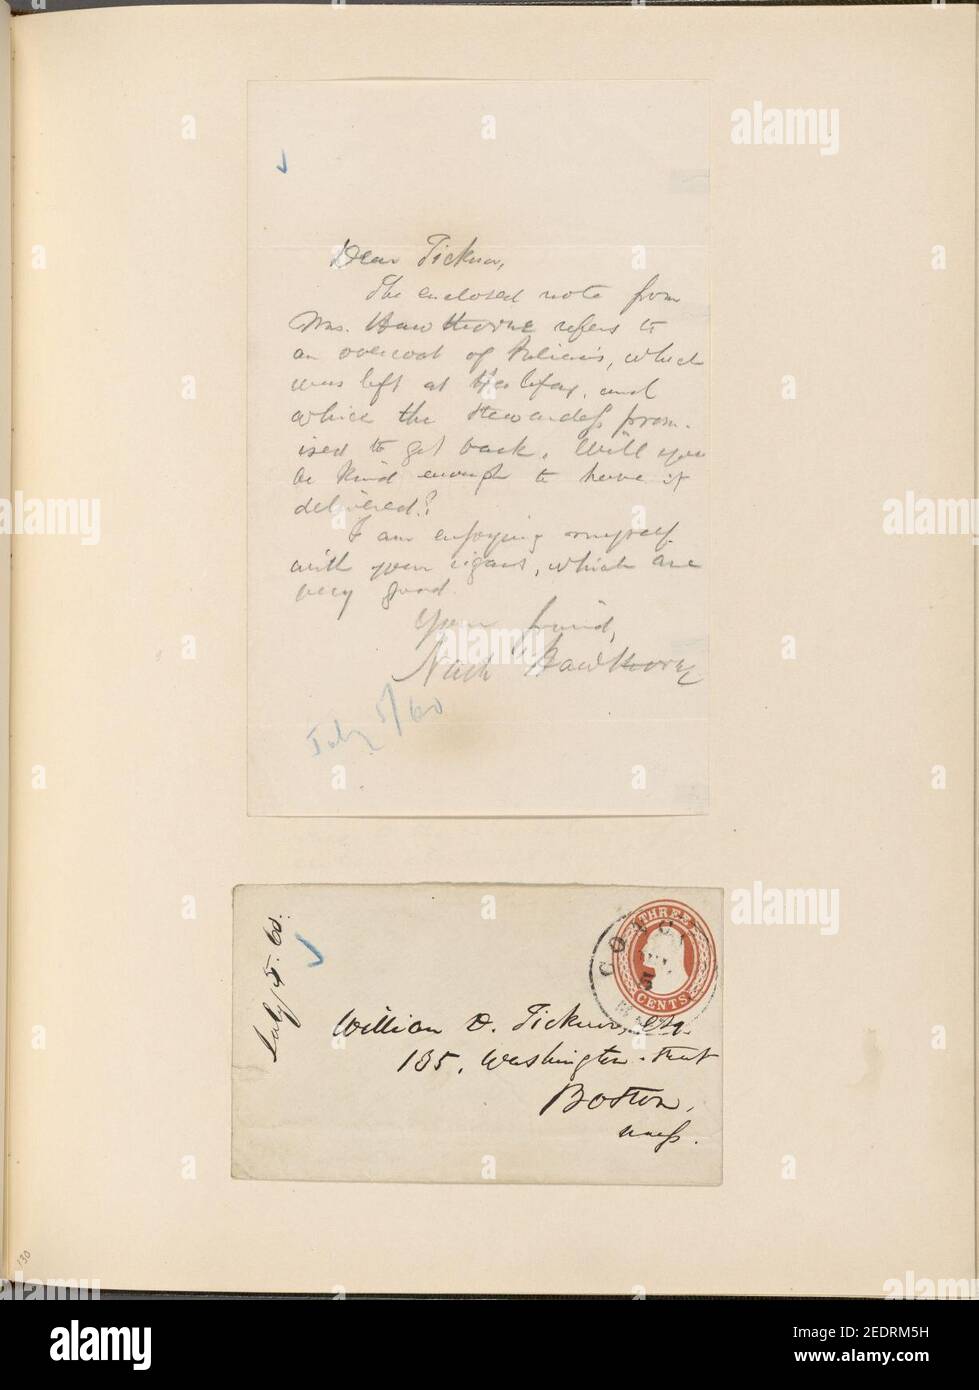 Dear Ticknor,
The enclosed note from
Mrs. Hawthorne refers to
an overcoat of Julian's, which
was left at Halifax, and
which the stewardess prom-
ised to get back. Will you
be kind enough to have it
delivered?
I am enjoying myself
with your cigars, which are
very good.
Your friend,
Nath Hawthorne
July 5/60
July 5. 60.
THREE
CENTS
CONC
5
William D. Ticknor, Esq.
135, Washington-street
Boston,
Mass.
130
alamy
Image ID: 2EDRM5H
www.alamy.com